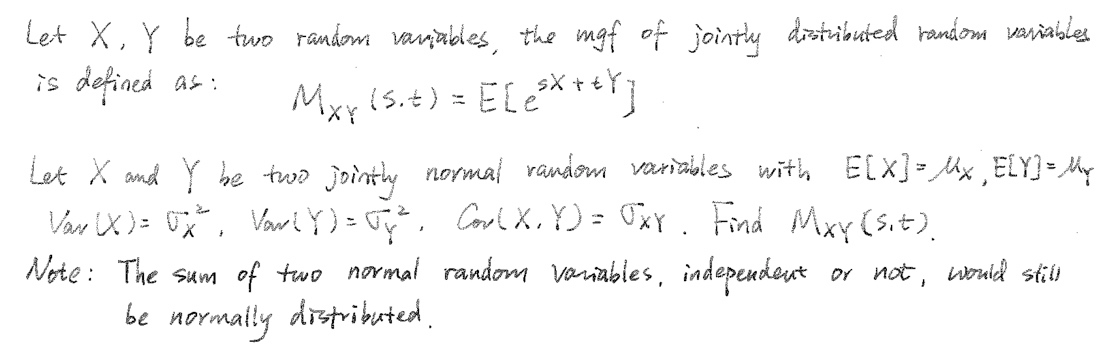 Let X, Y be two random variables, the mgf of jointly distributed random variables
is defined as:
M_{XY}(s,t) = E[e^{sX+tY}]
Let X and Y be two jointly normal random variables with E[X]=μ_X, E[Y]=μ_Y
Var(X)=σ_X^2, Var(Y)=σ_Y^2, Cov(X,Y)=σ_{XY}. Find M_{XY}(s,t).
Note: The sum of two normal random variables, independent or not, would still
be normally distributed.